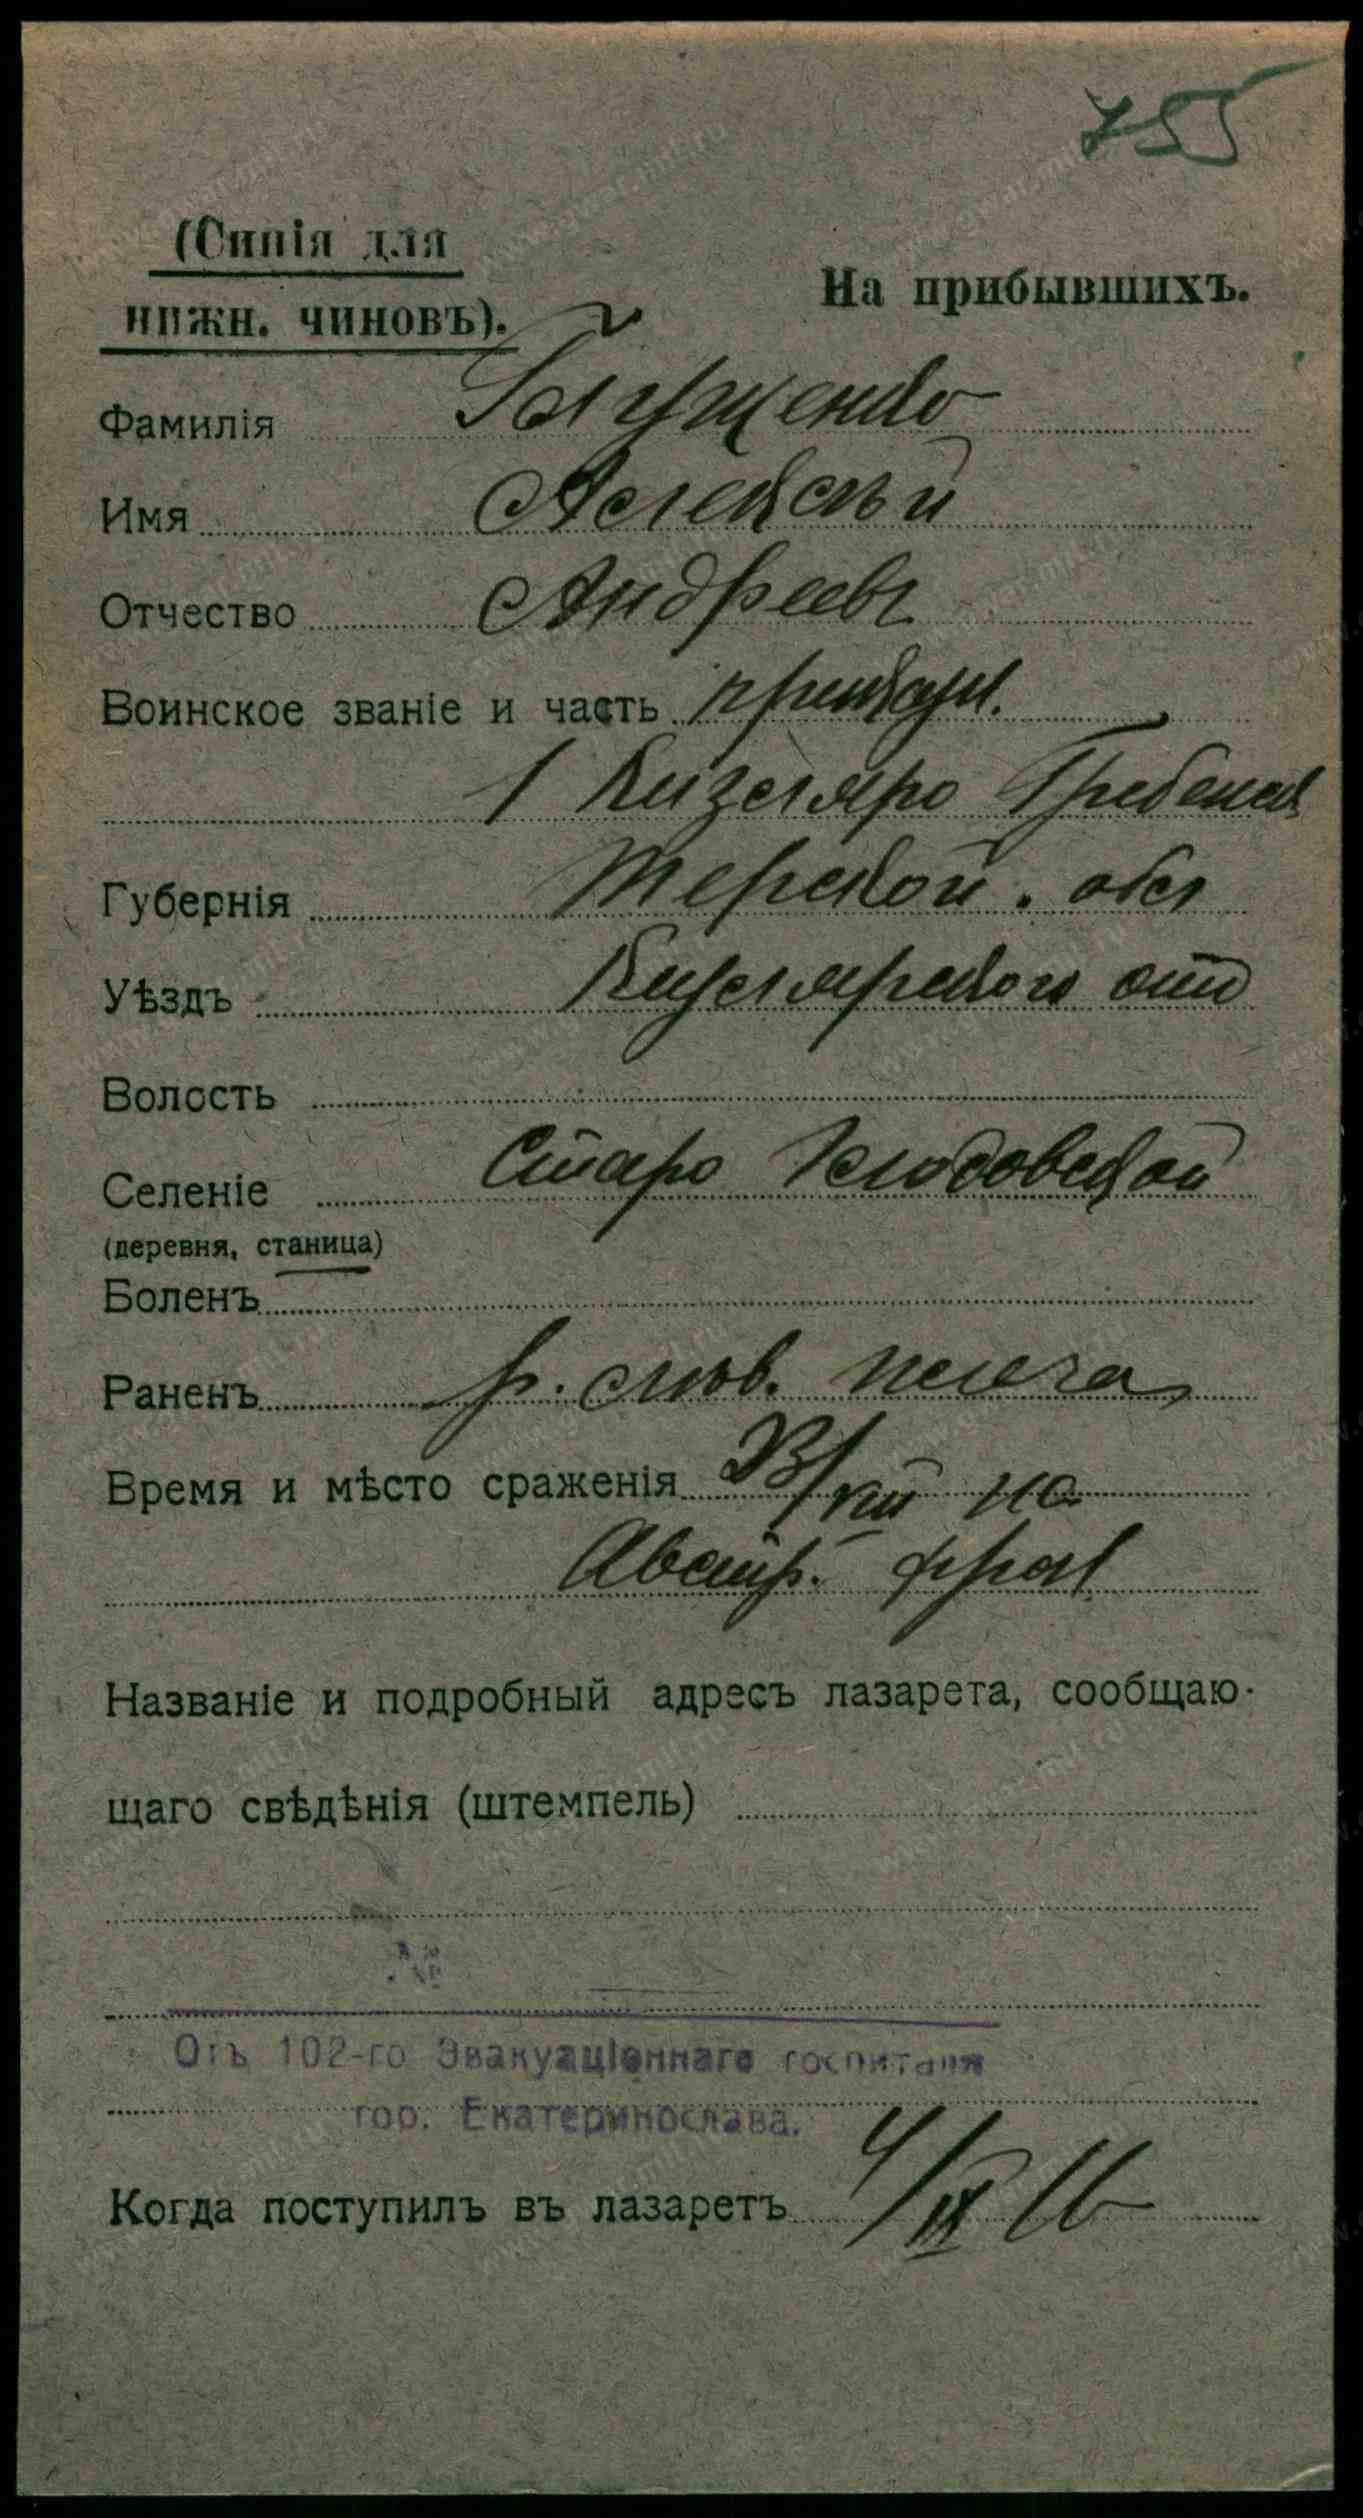 755
(Синія для
нижн. чиновъ).
На прибывшихъ.
Фамилія Глущенко
Имя Алексѣй
Отчество Андреевъ
Воинское званіе и часть приказн.
1 Кизляро Гребенск
Губернія Терской. обл
Уѣздъ Кизлярского отд
Волость
Селеніе Старо Гладовской
(деревня, станица)
Боленъ
Раненъ р. лѣв. плеча
Время и мѣсто сраженія на
Австр. фрон
Названіе и подробный адресъ лазарета, сообщаю-
щаго свѣдѣнія (штемпель)
Отъ 102-го Эвакуаціоннаго госпиталя
гор. Екатеринослава.
Когда поступилъ въ лазаретъ 4/IX 16